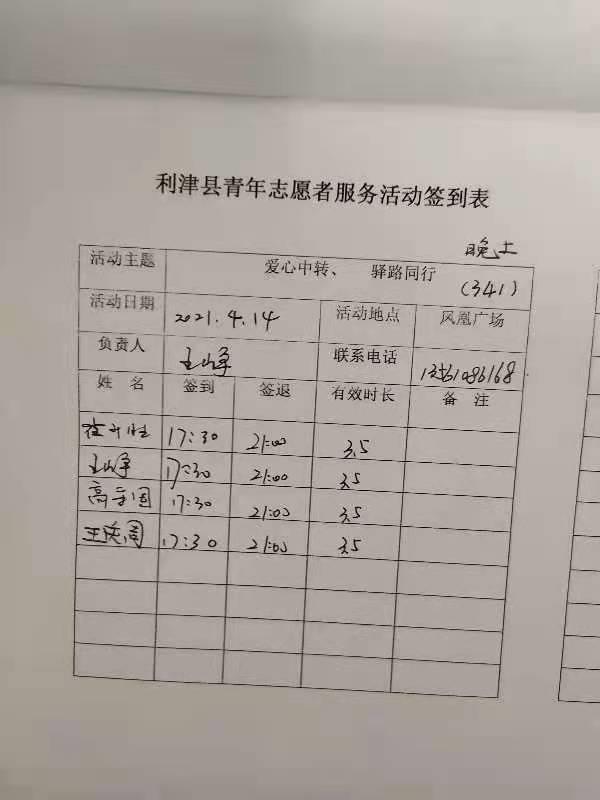 利津县青年志愿者服务活动签到表
晚上
活动主题 爱心中转、 驿路同行 (341)
活动日期 2021.4.14 活动地点 凤凰广场
负责人 联系电话
姓 名 签到 签退 有效时长 备 注
17:30 21:00 3.5
17:30 21:00 3.5
高 国 17:30 21:00 3.5
王 17:30 21:00 3.5